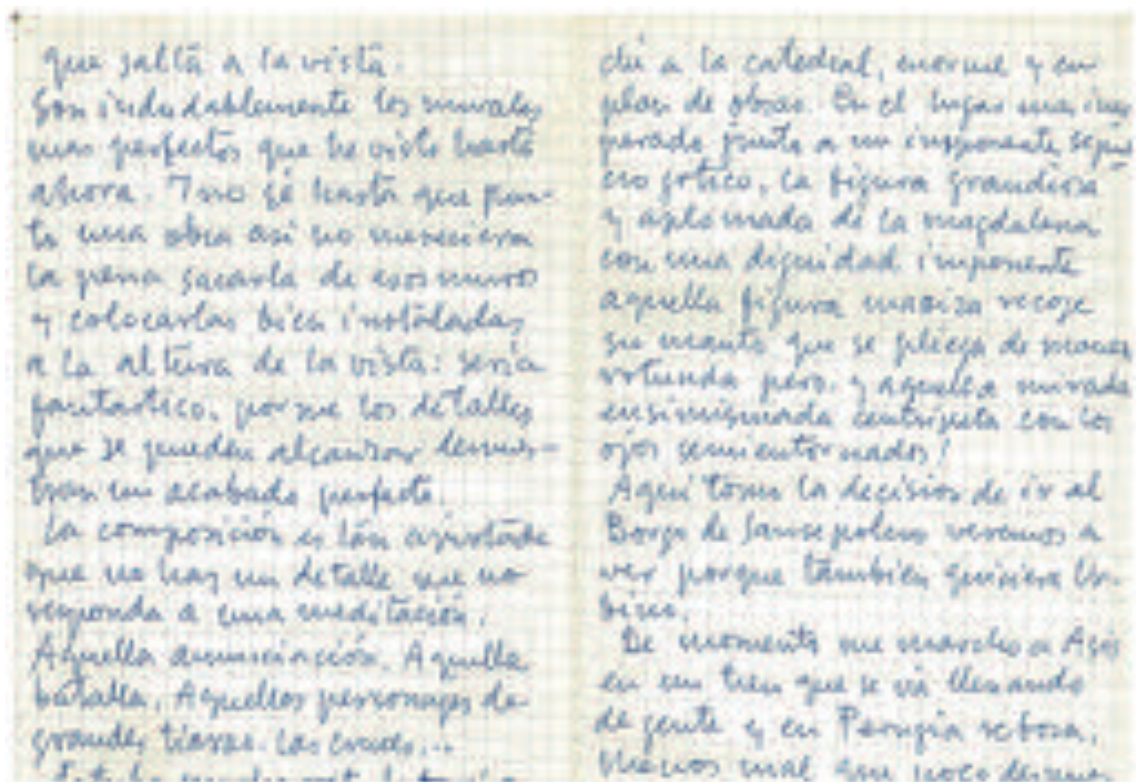 que salta a la vista.
Son indudablemente los murales
mas perfectos que he visto hasta
ahora. Y no sé hasta que pun-
to una obra asi no mereciera
la pena sacarla de esos muros
y colocarlas bien instaladas
a la altura de la vista: seria
fantastico, porque los detalles
que se pueden alcanzar demues-
tran un acabado perfecto.
La composición es tán ajustada
que no hay un detalle que no
responda a una meditación.
Aquella anunciación. Aquella
batalla. Aquellos personajes de
grandes tiaras. Las cruces...
che a la catedral, enorme y en
plan de obras. En el lugar mas ines
perado junto a un imponente sepul
cro gotico, la figura grandiosa
y aplomada de la magdalena
con una dignidad imponente
aquella figura maciza recoge
su manto que se pliega de manera
rotunda pero. y aquella mirada
ensimismada centripeta con los
ojos semientornados!
Aqui tomo la decision de ir al
Borgo de Sansepolcro veremos a
ver porque también quisiera Ur-
bino.
De momento me marcho a Asis
en un tren que se vá llenando
de gente y en Perugia rebosa.
Menos mal que